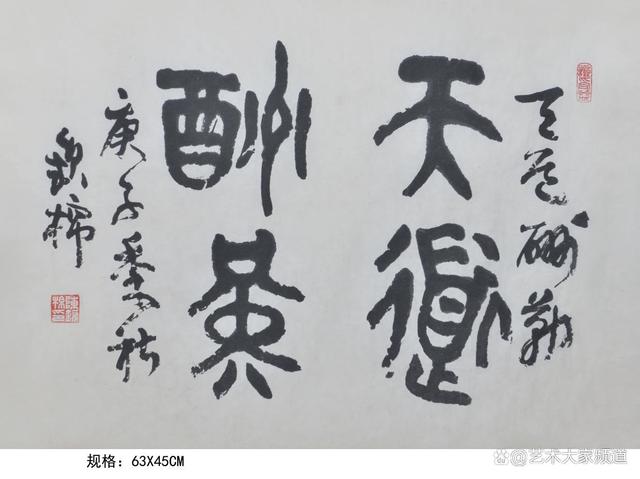 天道酬勤
天道
酬勤
庚子季秋
规格：63X45CM
艺术大家频道